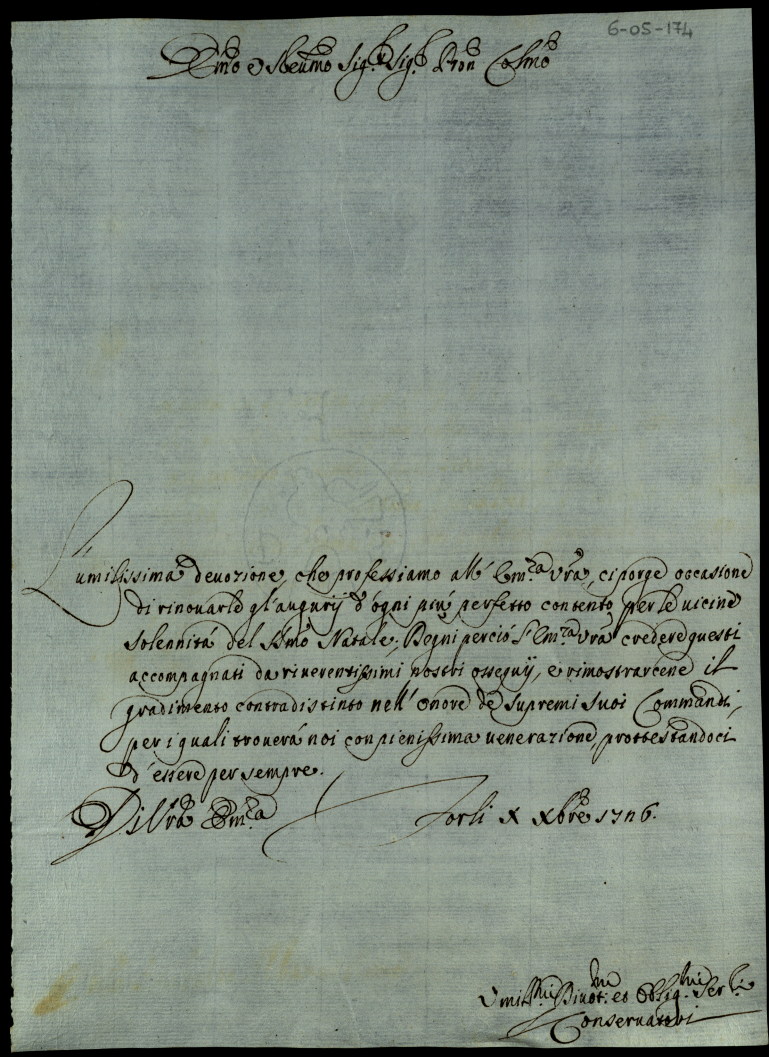 6-05-174
Emo e Reumo Sig.r Sig.r Pron Colmo
L'umilissima deuozione, che professiamo all' Em.za Vra, ci porge occasione
di rinouarle gl'augurij d'ogni più perfetto contento per le uicine
solennità del SSmo Natale. Degni perciò l'Em.za Vra credere questi
accompagnati da riuerentissimi nostri ossequij, e rimostrarcene il
gradimento contradistinto nell'onore de supremi suoi Commandi,
per i quali trouerà noi con pienissima uenerazione, prottestandoci
d'essere per sempre.
Di Vra Em.za
Forlì X Xbre 1726.
Vmil.mi Diuot.mi et Oblig.mi Ser.ri
Conseruatori